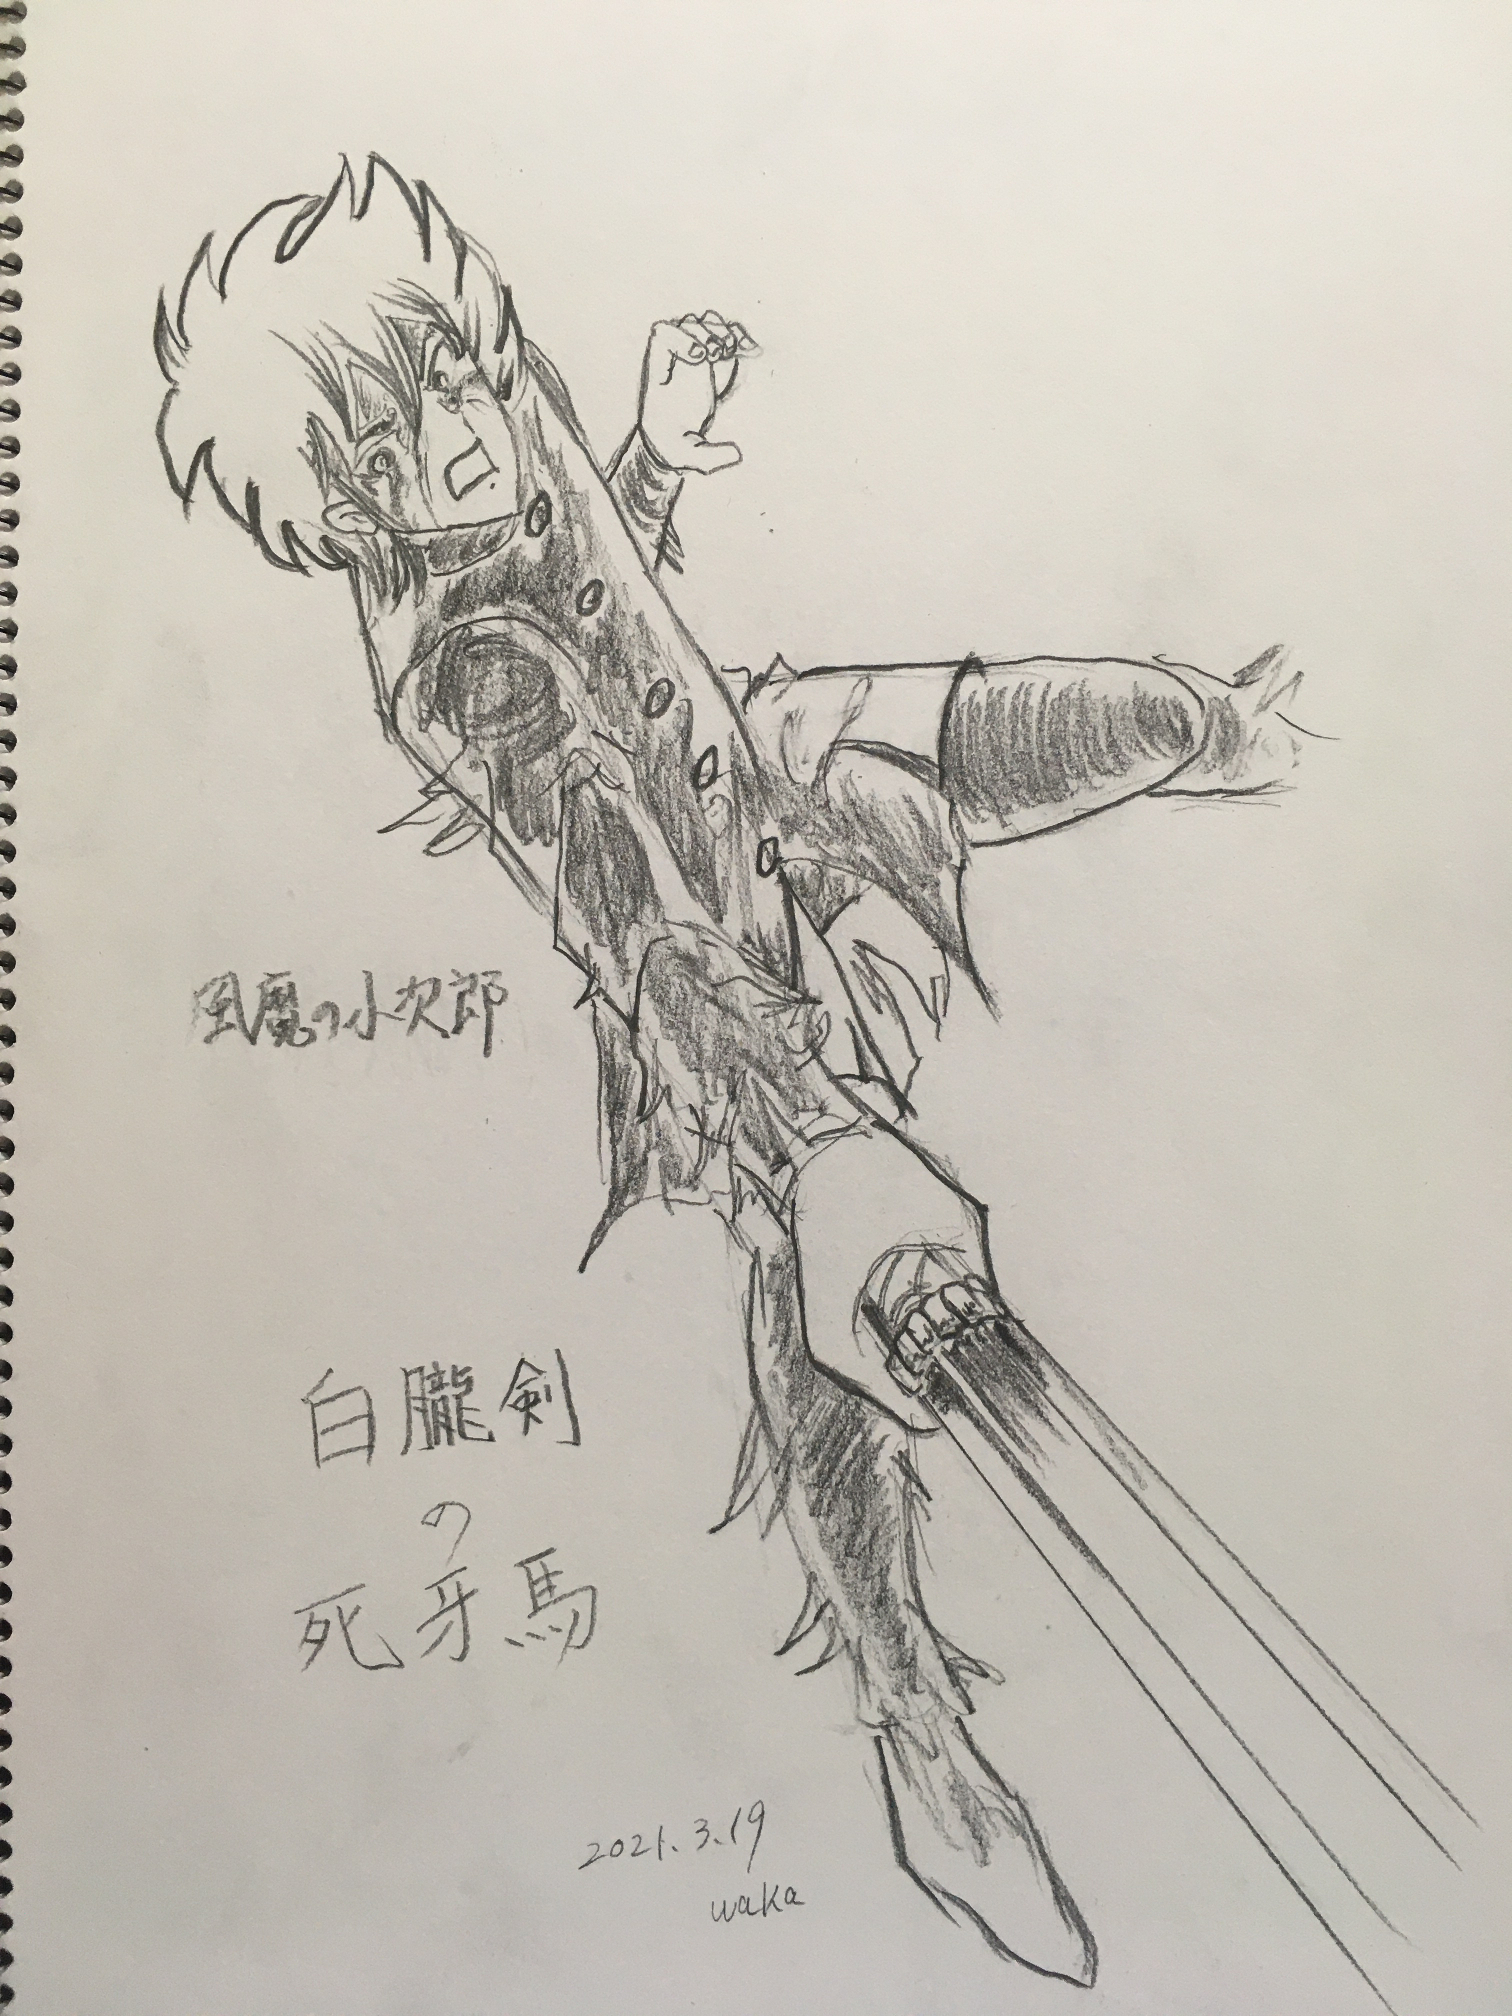 風魔の小次郎
白朧剣
の
死牙馬
2021.3.19
waka